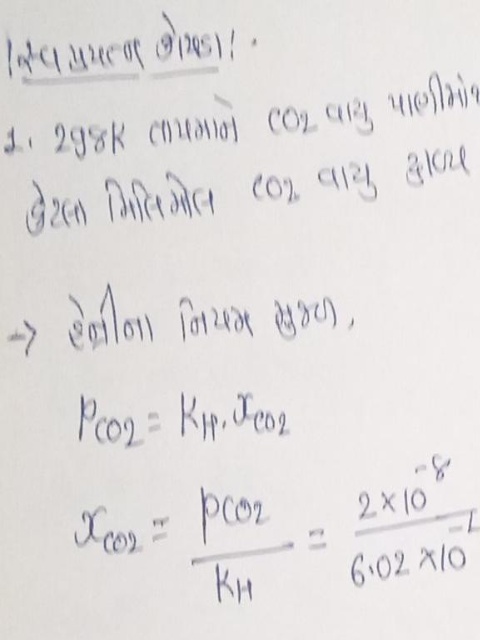 1. 298K તાપમાને CO2 વાયુ પાણીમાં
કેટલા મિલિમોલ CO2 વાયુ દ્રાવ્ય
→ હેન્રીના નિયમ મુજબ,
PCO2 = KH. xCO2
xCO2 = PCO2 / KH = 2×10⁻⁸ / 6.02×10